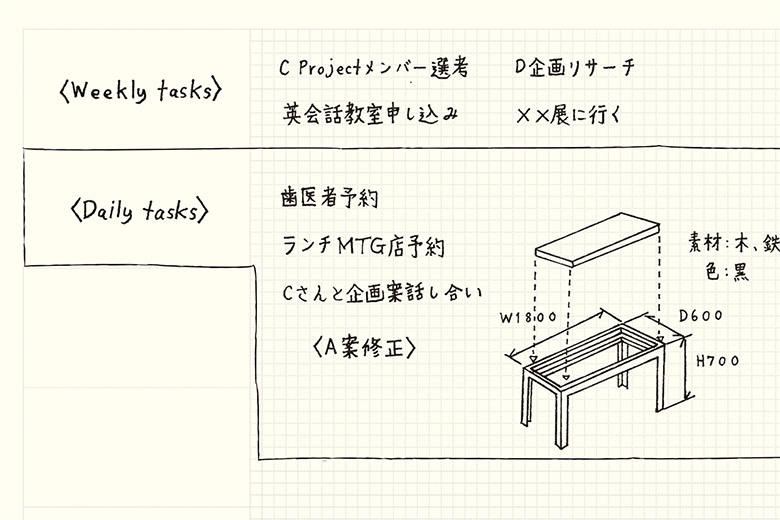 〈Weekly tasks〉
C Projectメンバー選考 D企画リサーチ
英会話教室申し込み ××展に行く
〈Daily tasks〉
歯医者予約
ランチMTG店予約
Cさんと企画案話し合い
〈A案修正〉
素材:木、鉄
色:黒
W1800
D600
H700